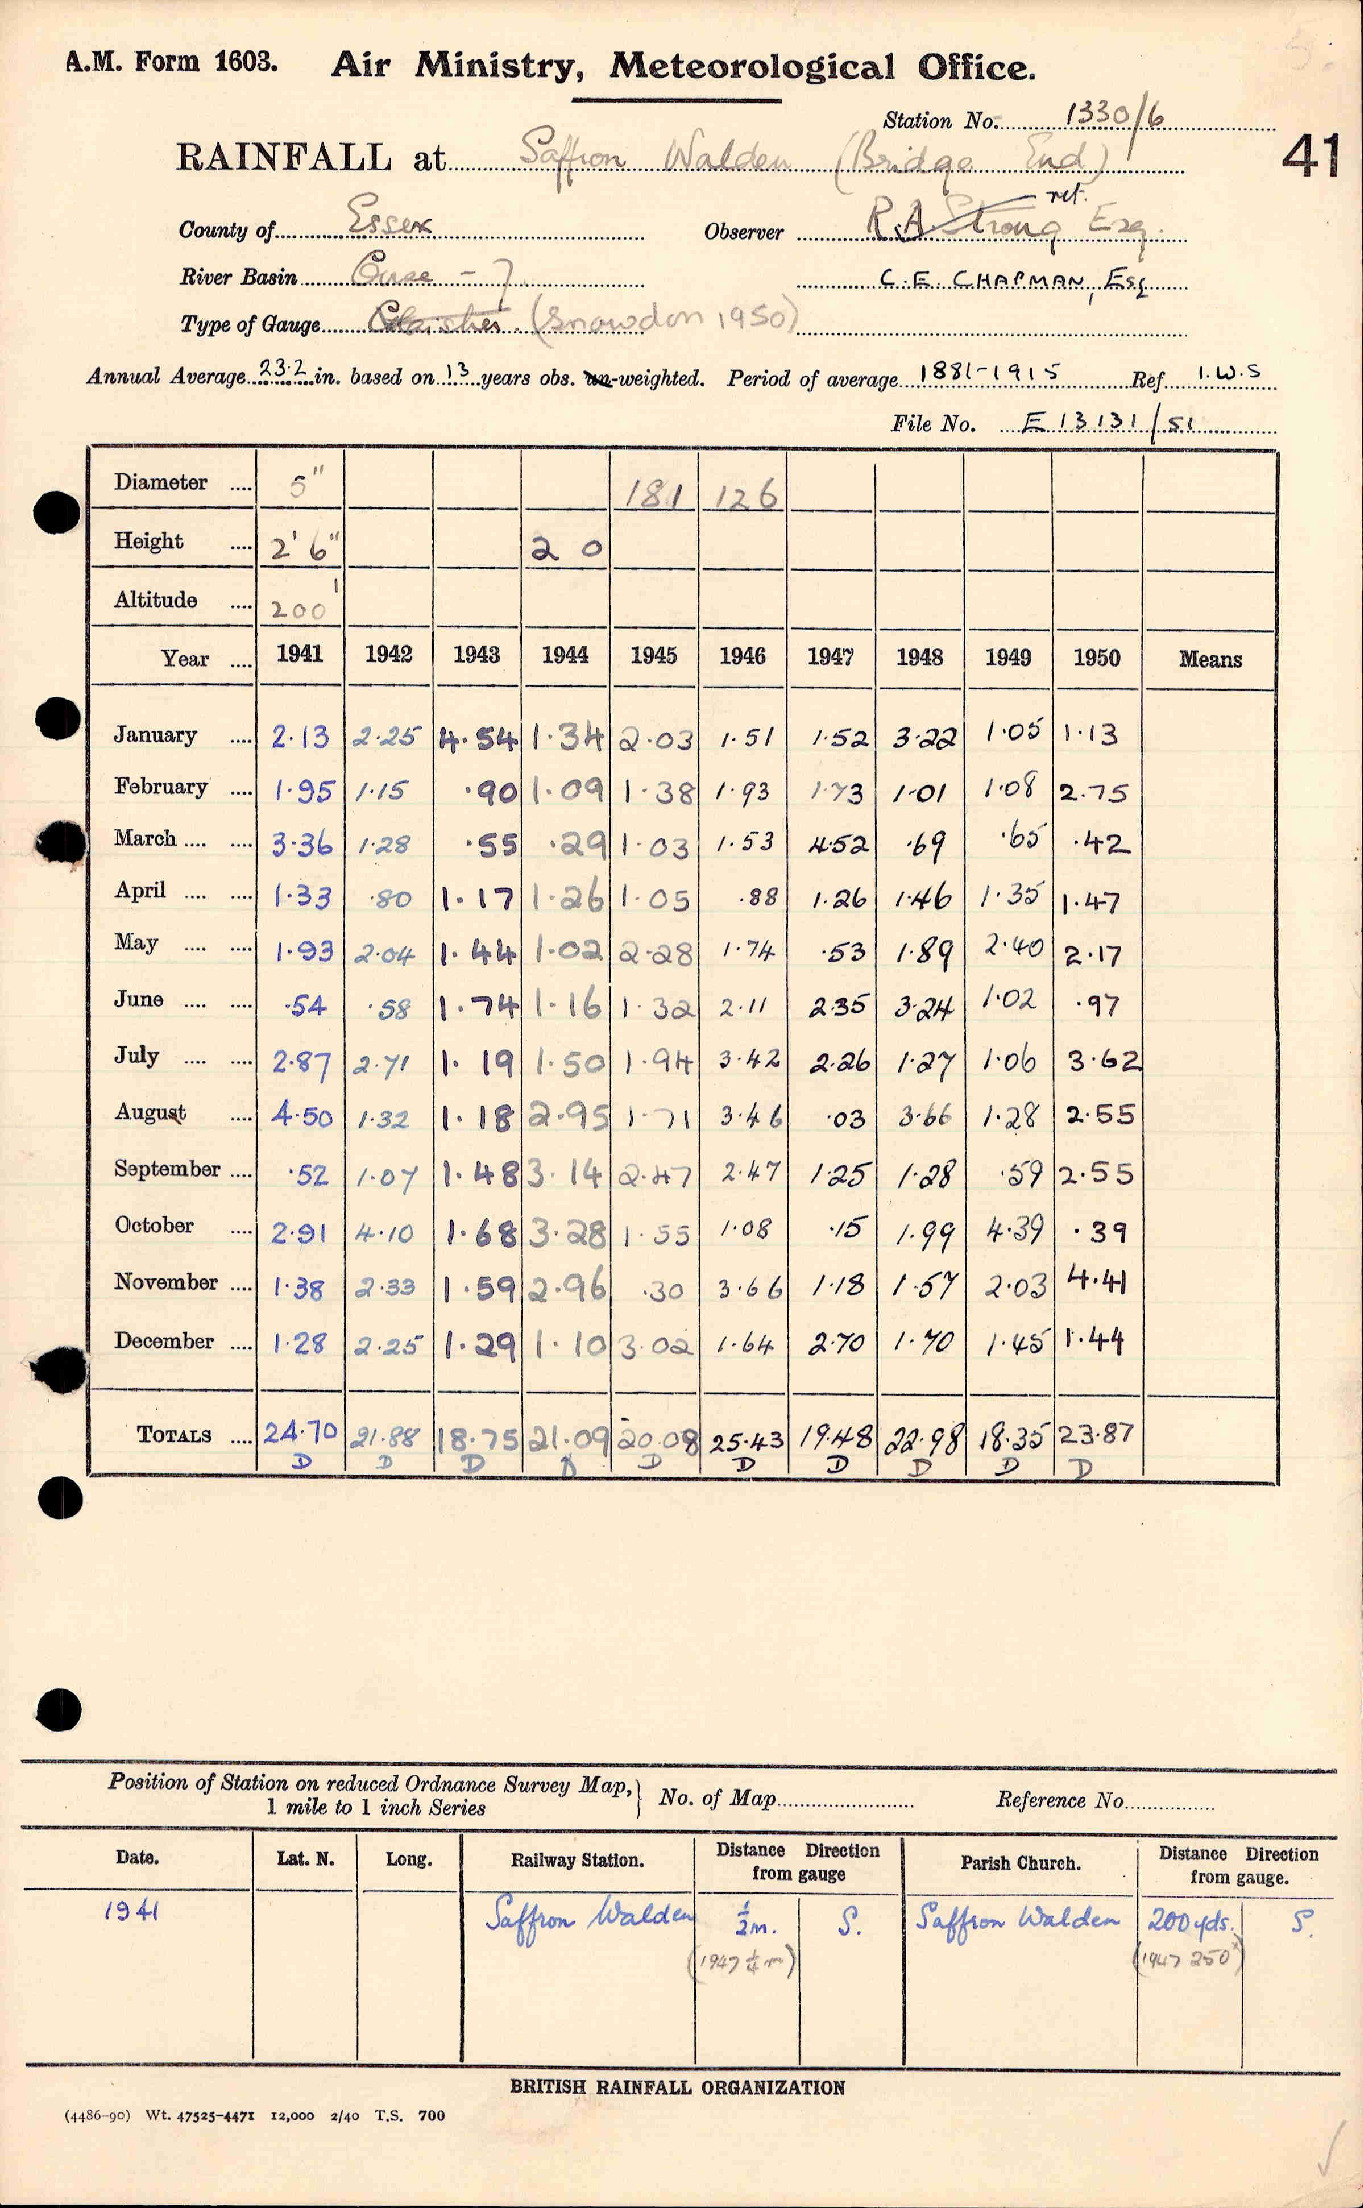 A.M. Form 1603. Air Ministry, Meteorological Office.
Station No. 1330/6
RAINFALL at Saffron Walden (Bridge End) 41
ret.
County of Essex Observer R.A Strong Esq.
River Basin Ouse - 7 C. E. CHAPMAN, Esq
Type of Gauge Glaisher. (Snowdon 1950)
Annual Average 23.2 in. based on 13 years obs. un-weighted. Period of average 1881-1915 Ref. I.W.S
File No. E 13131/51
Diameter .... 5" 181 126
Height .... 2' 6" 2 0
Altitude .... 200'
Year .... 1941 1942 1943 1944 1945 1946 1947 1948 1949 1950 Means
January .... 2.13 2.25 4.54 1.34 2.03 1.51 1.52 3.22 1.05 1.13
February .... 1.95 1.15 .90 1.09 1.38 1.93 1.73 1.01 1.08 2.75
March .... .... 3.36 1.28 .55 .29 1.03 1.53 4.52 .69 .65 .42
April .... .... 1.33 .80 1.17 1.26 1.05 .88 1.26 1.46 1.35 1.47
May .... .... 1.93 2.04 1.44 1.02 2.28 1.74 .53 1.89 2.40 2.17
June .... .... .54 .58 1.74 1.16 1.32 2.11 2.35 3.24 1.02 .97
July .... .... 2.87 2.71 1.19 1.50 1.94 3.42 2.26 1.27 1.06 3.62
August .... 4.50 1.32 1.18 2.95 1.71 3.46 .03 3.66 1.28 2.55
September .... .52 1.07 1.48 3.14 2.47 2.47 1.25 1.28 .59 2.55
October .... 2.91 4.10 1.68 3.28 1.55 1.08 .15 1.99 4.39 .39
November .... 1.38 2.33 1.59 2.96 .30 3.66 1.18 1.57 2.03 4.41
December .... 1.28 2.25 1.29 1.10 3.02 1.64 2.70 1.70 1.45 1.44
TOTALS .... 24.70 21.88 18.75 21.09 20.08 25.43 19.48 22.98 18.35 23.87
D D D D D D D D D D
Position of Station on reduced Ordnance Survey Map, 1 mile to 1 inch Series } No. of Map Reference No.
Date. Lat. N. Long. Railway Station. Distance Direction from gauge Parish Church. Distance Direction from gauge.
1941 Saffron Walden ½ m. S. Saffron Walden 200 yds. S.
(1947 ¼ m) (1947 250x)
BRITISH RAINFALL ORGANIZATION
(4486-90) Wt. 47525-4471 12,000 2/40 T.S. 700